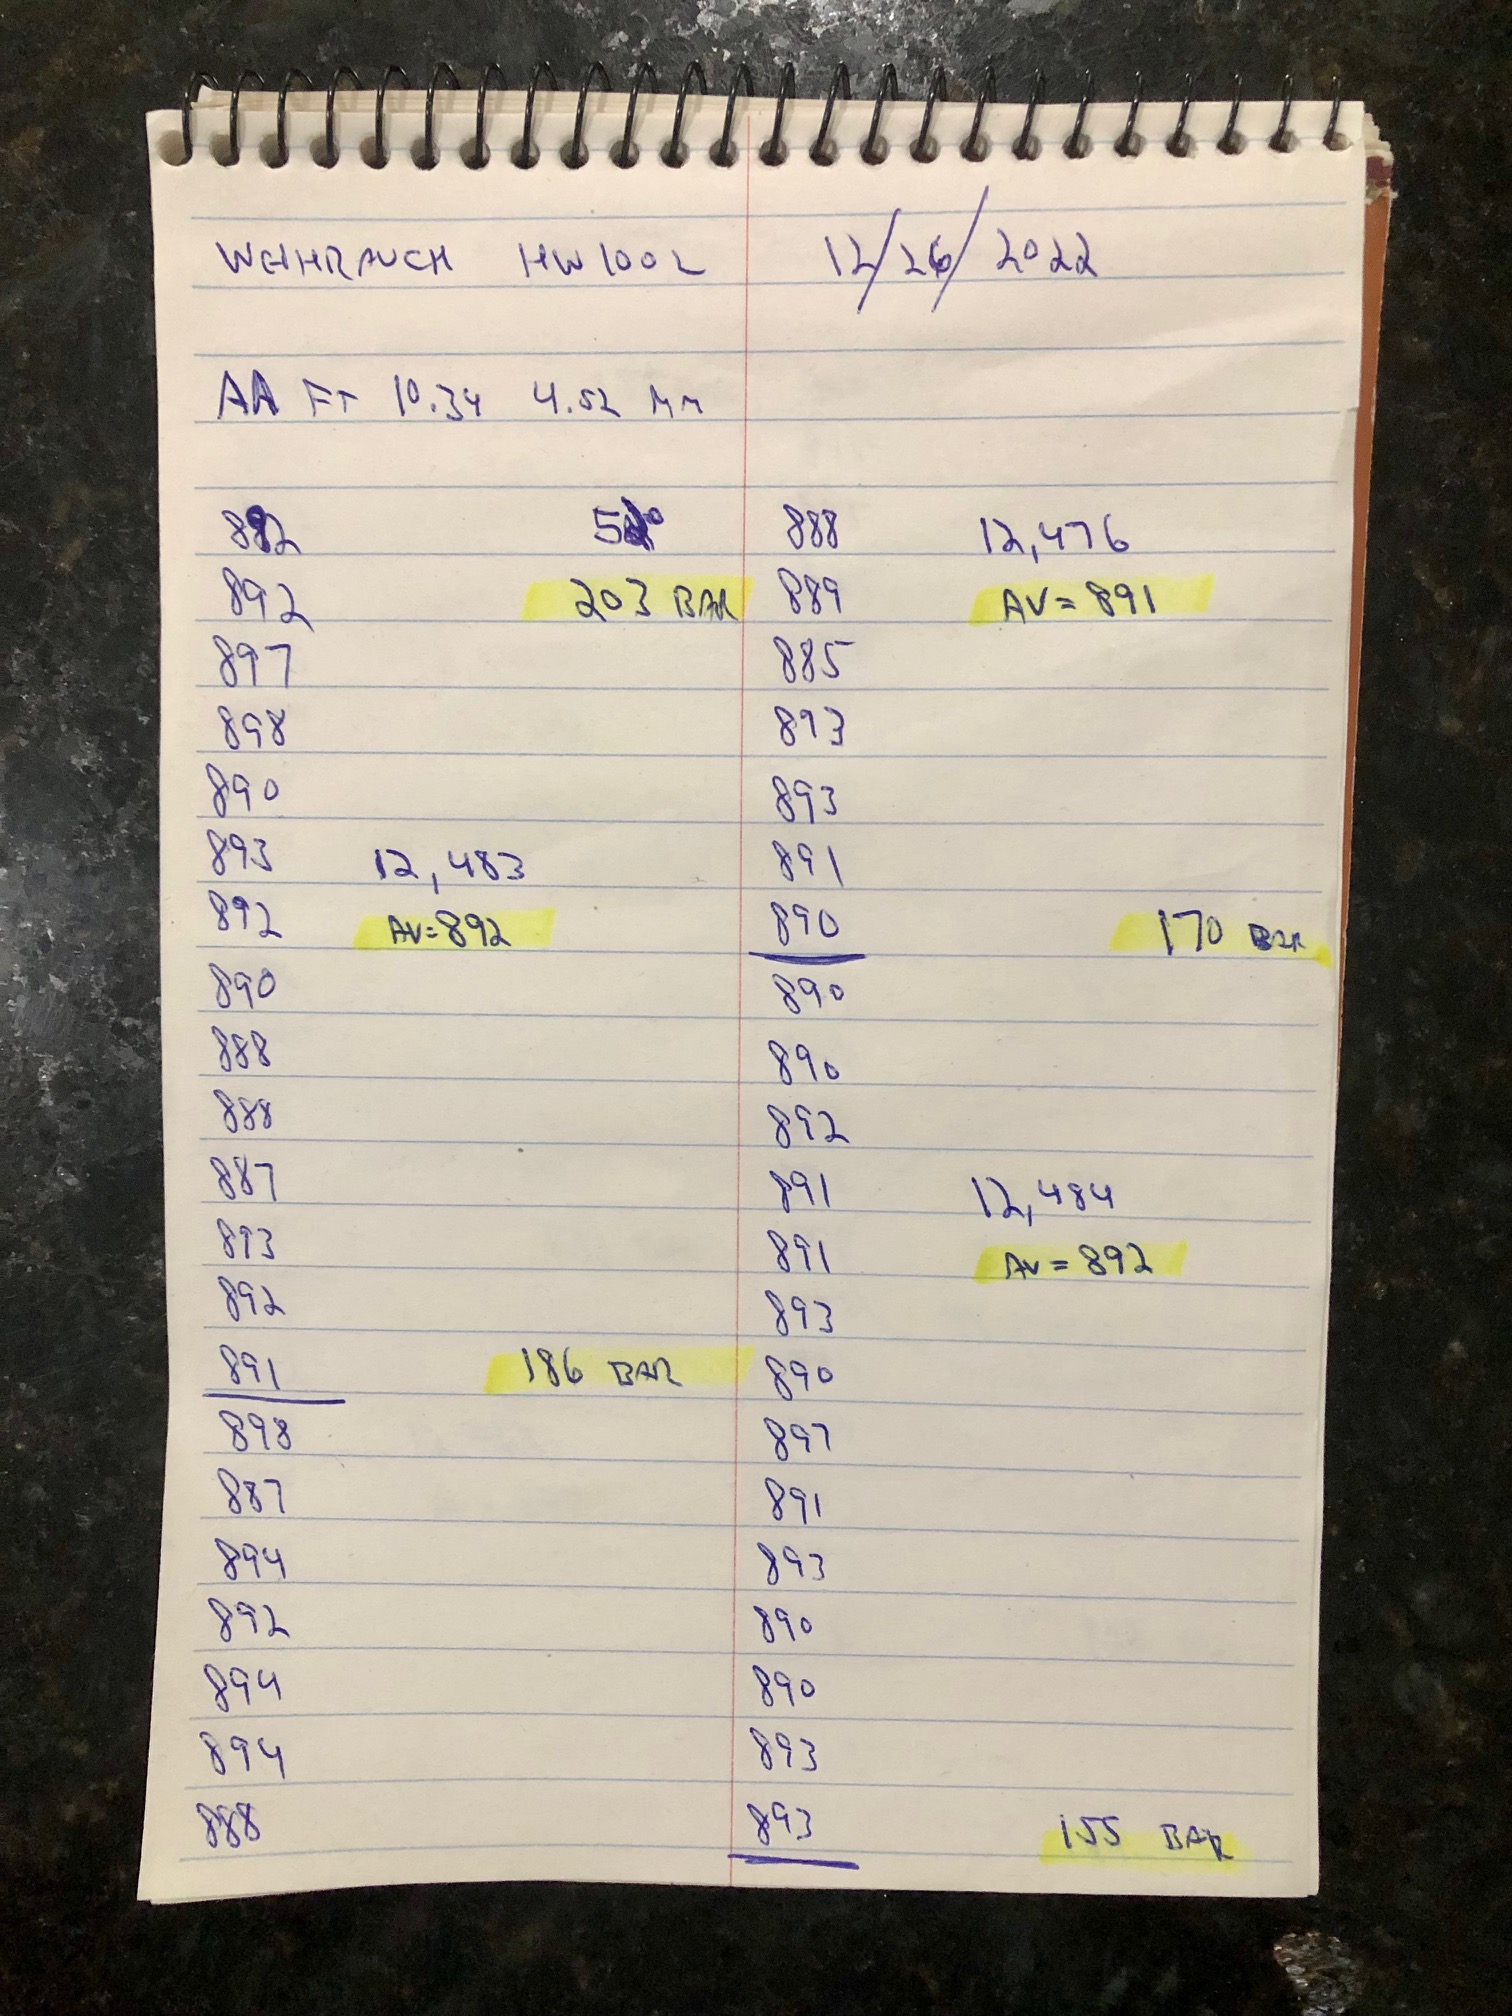 WEIHRAUCH HW100L 12/26/2022
AA FT 10.34 4.52 MM
892
892 203 BAR
897
898
890
893 12,483
892 AV=892
890
888
888
887
893
892
891 186 BAR
898
887
894
892
894
894
888
888 12,476
889 AV=891
885
893
893
891
890 170 BAR
890
890
892
891 12,484
891 AV=892
893
890
897
891
893
890
890
893
893 155 BAR